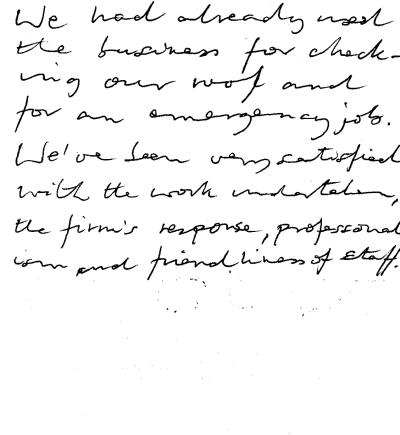 We had already used
the business for check-
ing our roof and
for an emergency job.
We've been very satisfied
with the work undertaken,
the firm's response, professional
ism and friendliness of staff.